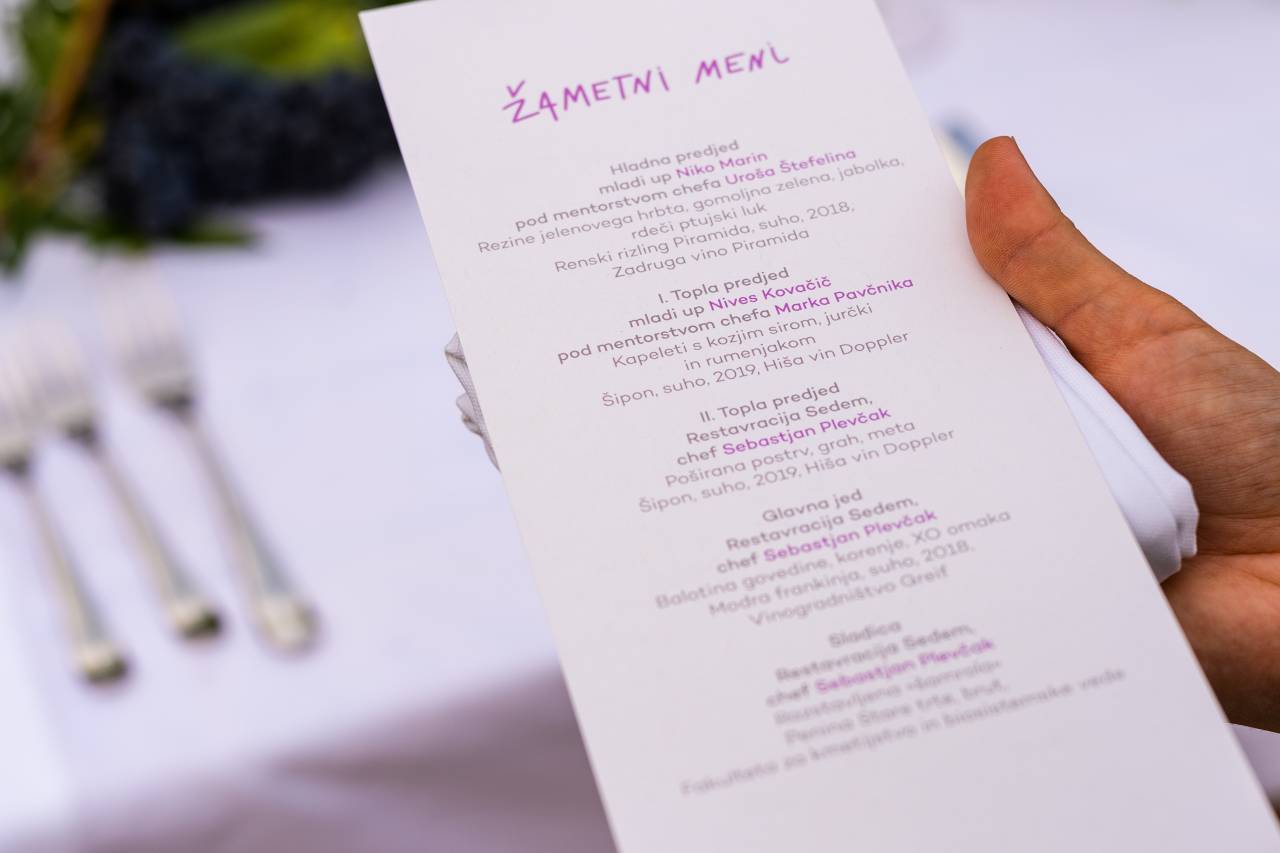 ŽAMETNI MENI
Hladna predjed
mladi up Niko Marin
pod mentorstvom chefa Uroša Štefelina
Rezine jelenovega hrbta, gomoljna zelena, jabolka,
rdeči ptujski luk
Renski rizling Piramida, suho, 2018,
Zadruga vino Piramida
I. Topla predjed
mladi up Nives Kovačič
pod mentorstvom chefa Marka Pavčnika
Kapeleti s kozjim sirom, jurčki
in rumenjakom
Šipon, suho, 2019, Hiša vin Doppler
II. Topla predjed
Restavracija Sedem,
chef Sebastjan Plevčak
Poširana postrv, grah, meta
Šipon, suho, 2019, Hiša vin Doppler
Glavna jed
Restavracija Sedem,
chef Sebastjan Plevčak
Balotina govedine, korenje, XO omaka
Modra frankinja, suho, 2018,
Vinogradništvo Greif
Sladica
Restavracija Sedem,
chef Sebastjan Plevčak
Razstavljena »šamrola«
Penina Stare trte, brut,
Fakulteta za kmetijstvo in biosistemske vede